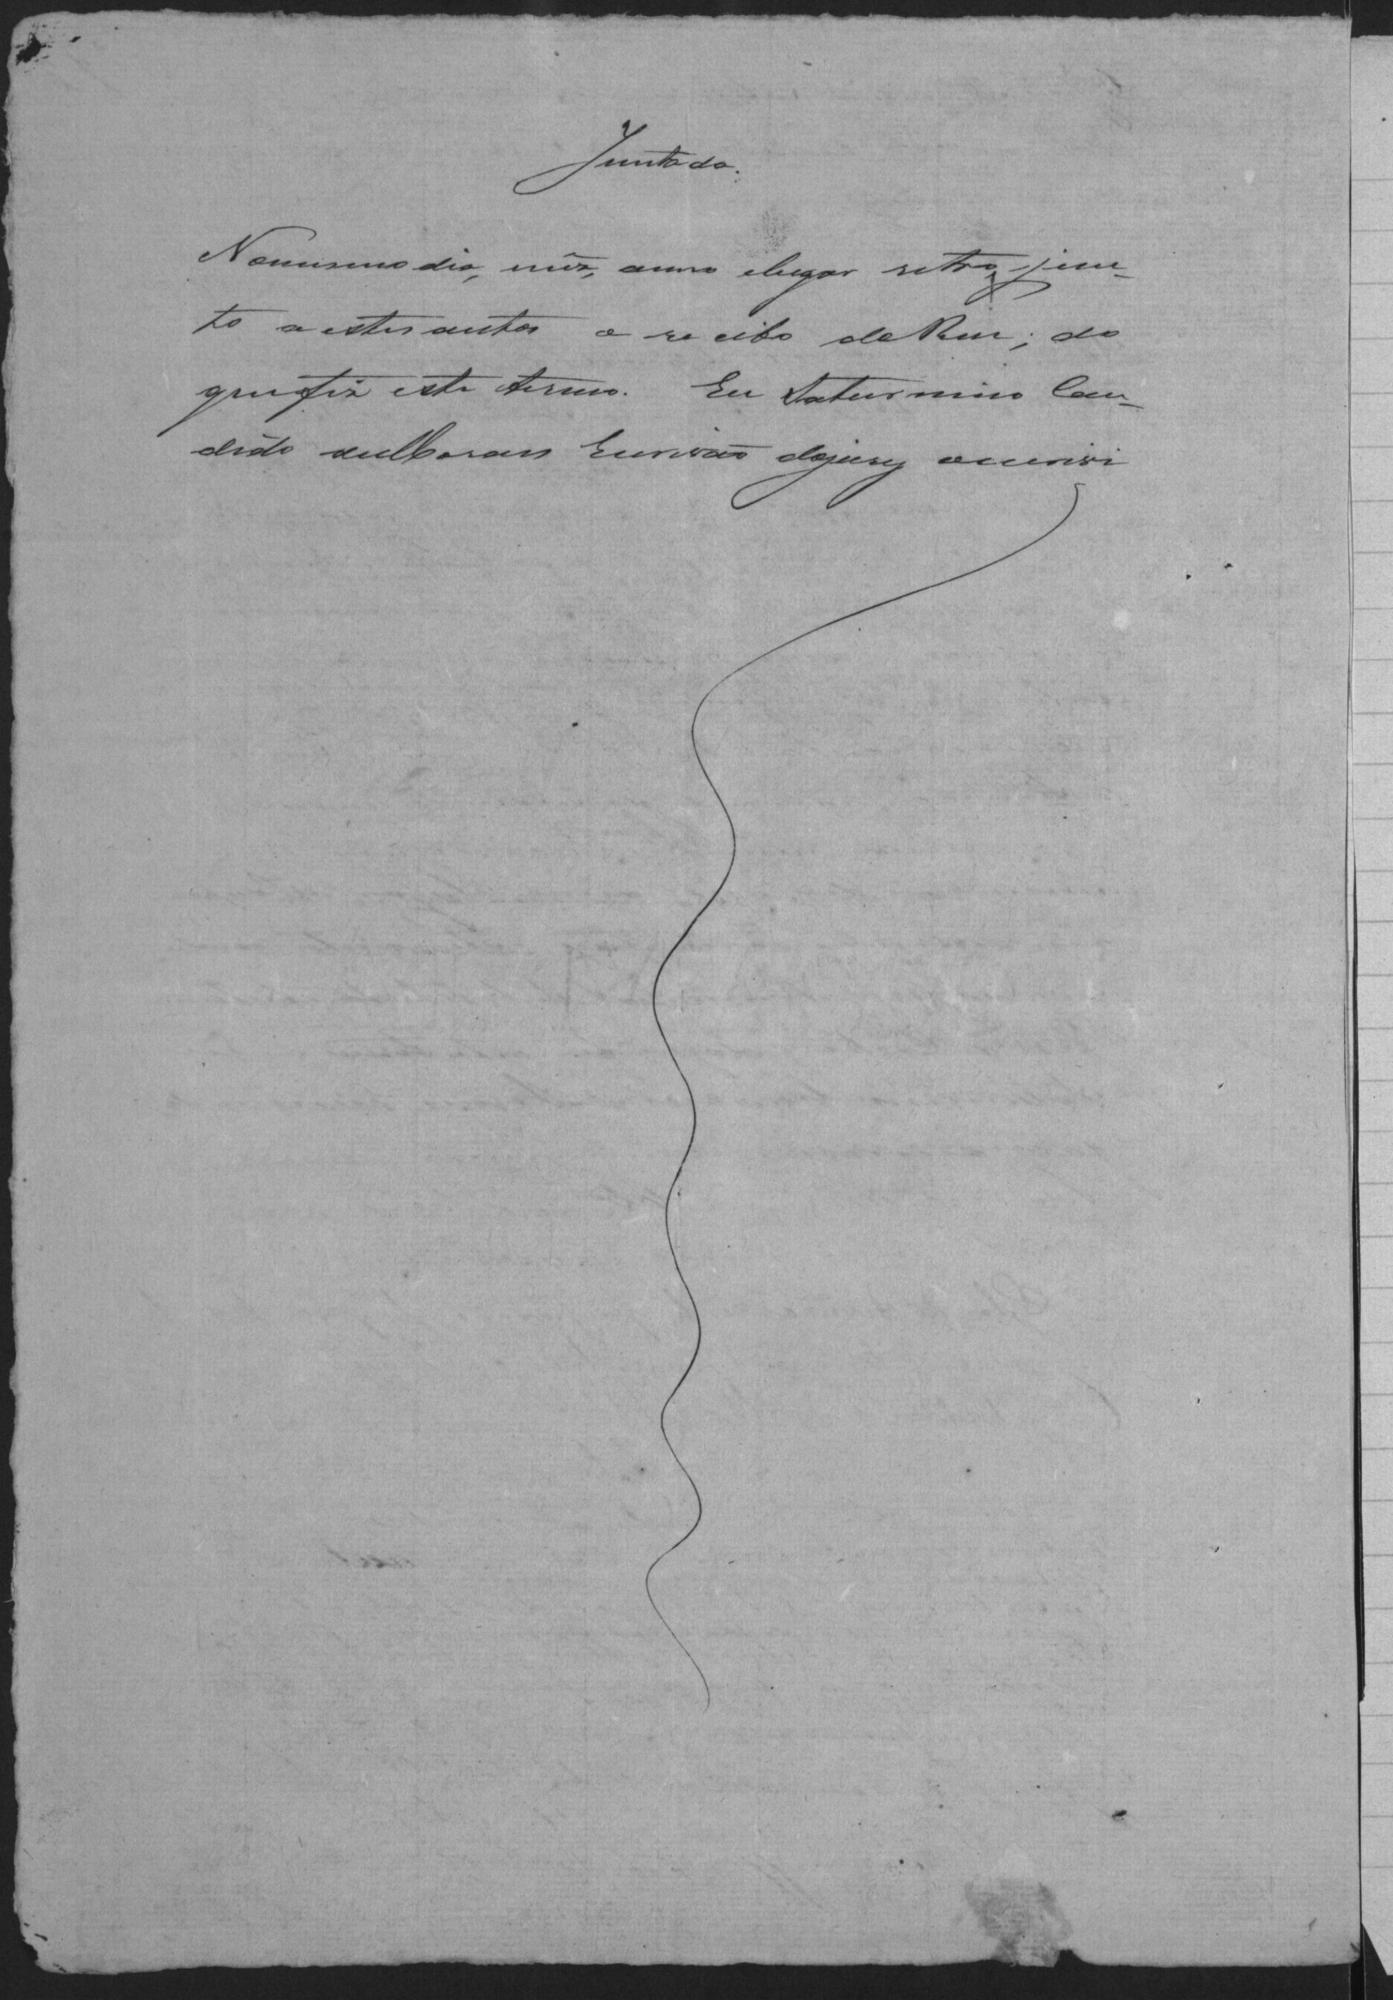 Juntada.
No mesmo dia, mêz, anno e lugar retro, jun-
to a estes autos o recibo do Reu; do
que fiz este termo. Eu Saturnino Can-
dido de Moraes Escrivão do jury o escrivi